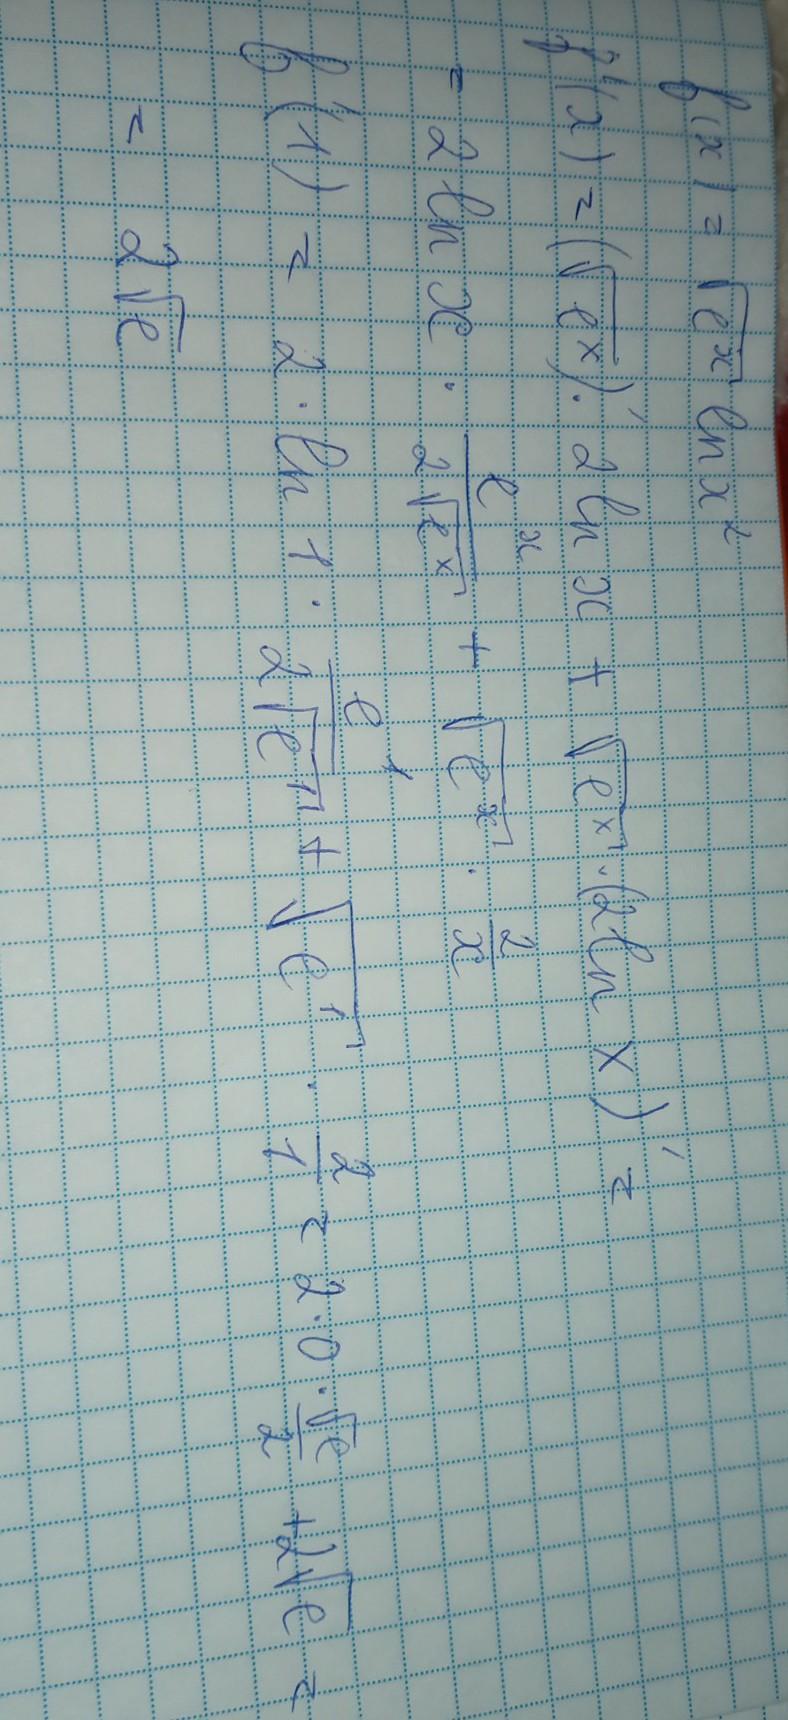 f(x) = √eˣ ln x²
f'(x) = (√eˣ)' · 2 ln x + √eˣ · (2 ln x)' =
= 2 ln x · eˣ/(2√eˣ) + √eˣ · 2/x
f'(1) = 2 · ln 1 · e¹/(2√e¹) + √e¹ · 2/1 = 2 · 0 · √e/2 + 2√e =
= 2√e